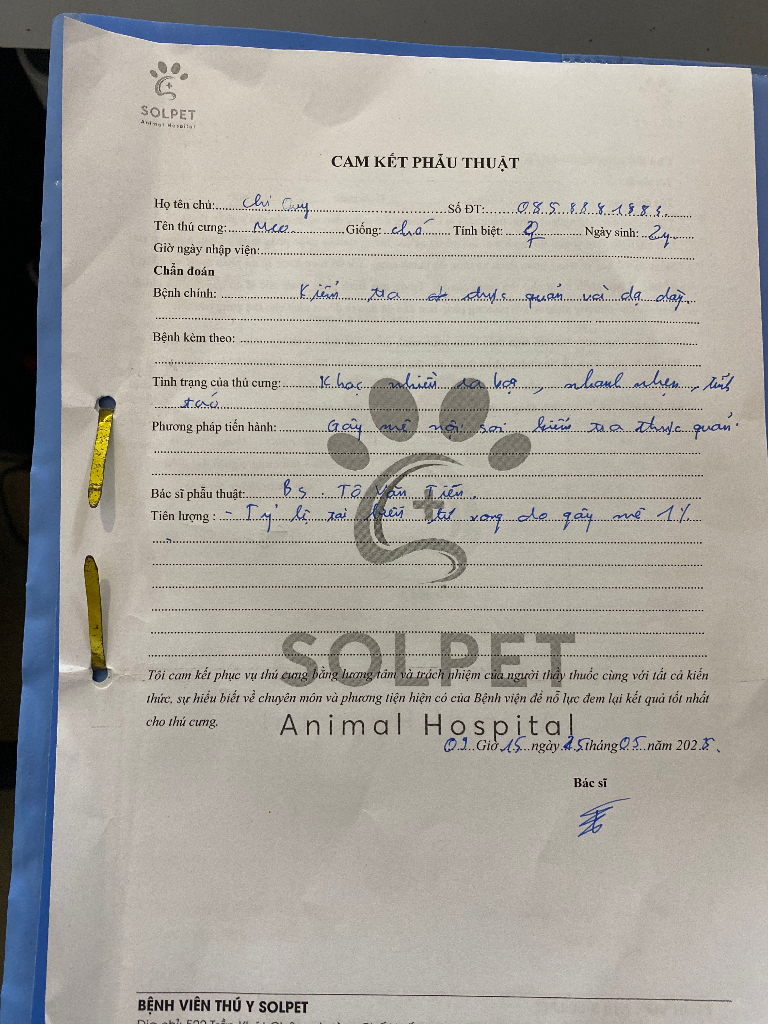 SOLPET
Animal Hospital
CAM KẾT PHẪU THUẬT
Họ tên chủ: Chị Quy Số ĐT:
Tên thú cưng: Meo Giống: chó Tính biệt: ♀ Ngày sinh: 2y
Giờ ngày nhập viện:
Chẩn đoán
Bệnh chính: Kiểm tra thực quản và dạ dày
Bệnh kèm theo:
Tình trạng của thú cưng: Khạc nhiều ra bọt, nhanh nhẹn, tỉnh
táo
Phương pháp tiến hành: Gây mê nội soi kiểm tra thực quản.
Bác sĩ phẫu thuật: Bs. Tô Văn Tiến.
Tiên lượng : - Tỷ lệ tai biến tử vong do gây mê 1%
SOLPET
Animal Hospital
Tôi cam kết phục vụ thú cưng bằng lương tâm và trách nhiệm của người thầy thuốc cùng với tất cả kiến
thức, sự hiểu biết về chuyên môn và phương tiện hiện có của Bệnh viện để nỗ lực đem lại kết quả tốt nhất
cho thú cưng.
Giờ 15 ngày tháng 05 năm 2025.
Bác sĩ
BỆNH VIỆN THÚ Y SOLPET